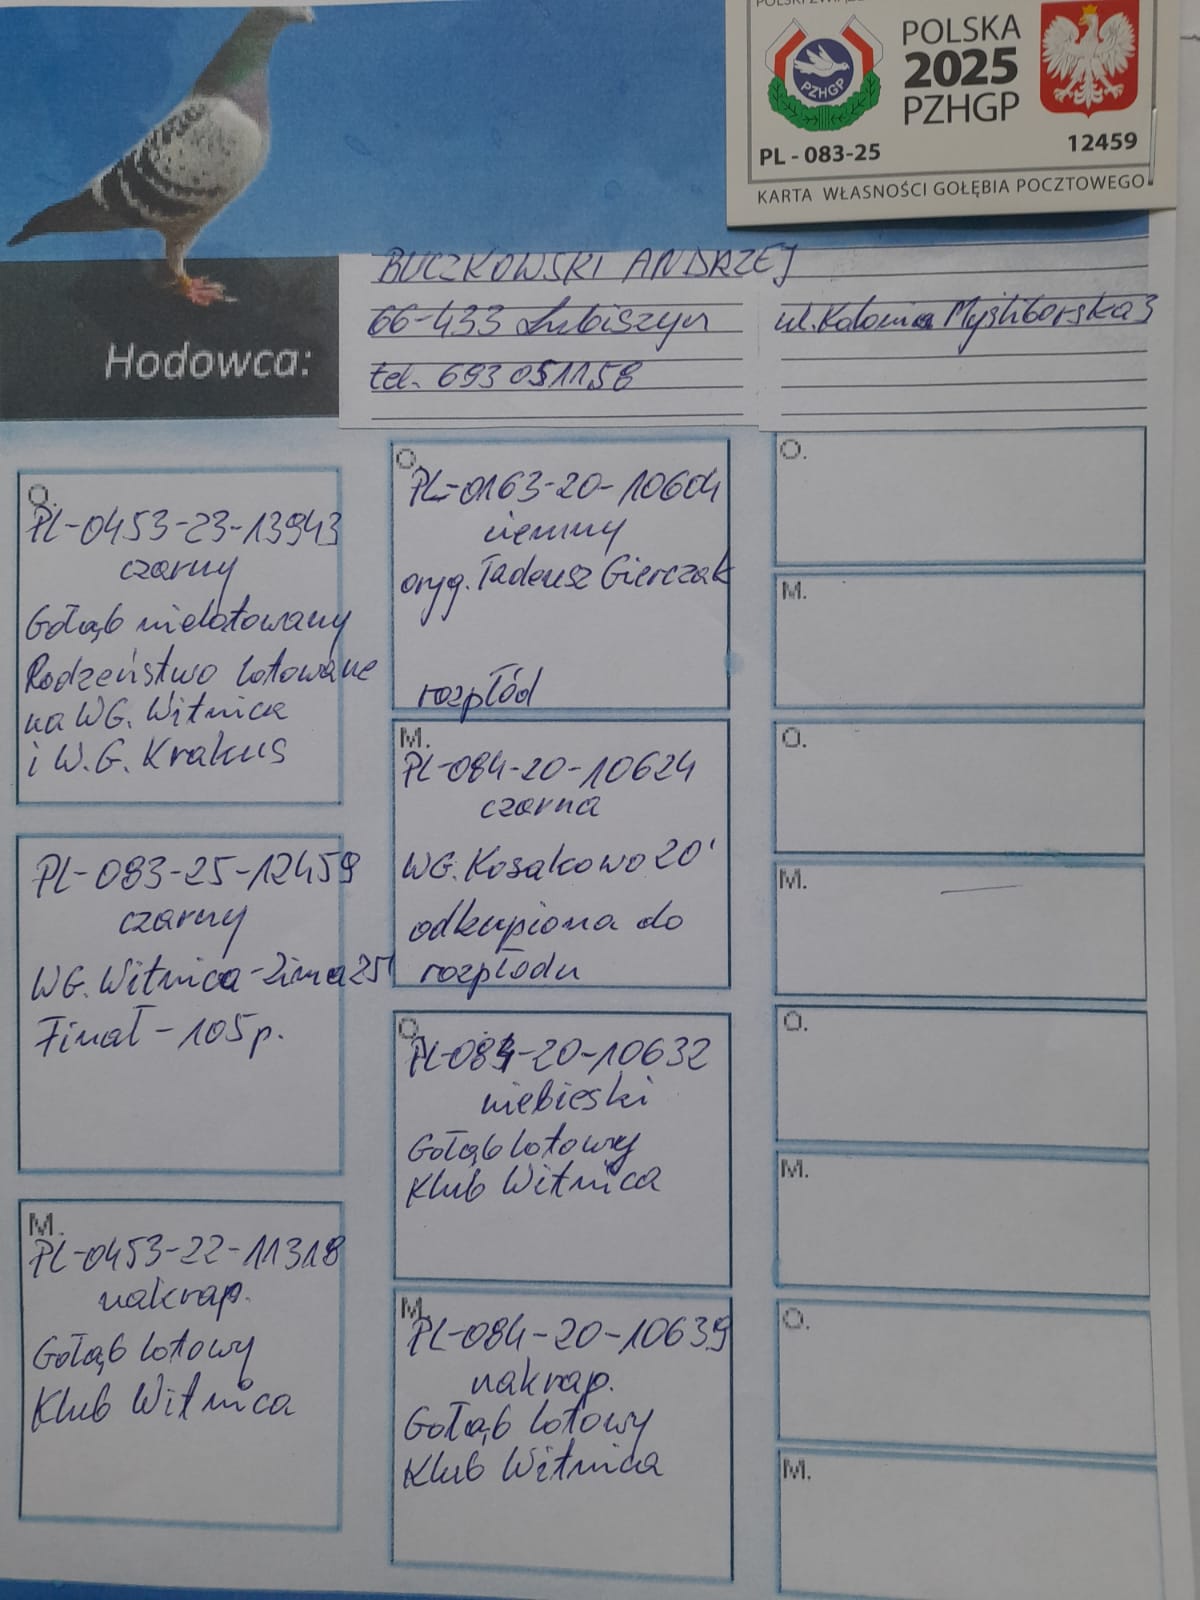 POLSKA
2025
PZHGP
PZHGP
PL - 083-25
12459
KARTA WŁASNOŚCI GOŁĘBIA POCZTOWEGO
Hodowca:
BUCZKOWSKI ANDRZEJ
66-433 Lubiszyn
ul. Kolonia Myśliborska 3
tel. 693 051158
O.
PL-0453-23-13943
czarny
Gołąb nielotowany
Rodzeństwo lotowane
na WG. Witnica
i W.G. Krakus
PL-083-25-12459
czarny
WG. Witnica-Zima 25'
Finał - 105 p.
M.
PL-0453-22-11318
nakrap.
Gołąb lotowy
Klub Witnica
O.
PL-0163-20-10604
ciemny
oryg. Tadeusz Gierczak
rozpłód
M.
PL-084-20-10624
czarna
WG. Kosakowo 20'
odkupiona do
rozpłodu
O.
PL-084-20-10632
niebieski
Gołąb lotowy
Klub Witnica
M.
PL-084-20-10639
nakrap.
Gołąb lotowy
Klub Witnica
O.
M.
O.
M.
O.
M.
O.
M.